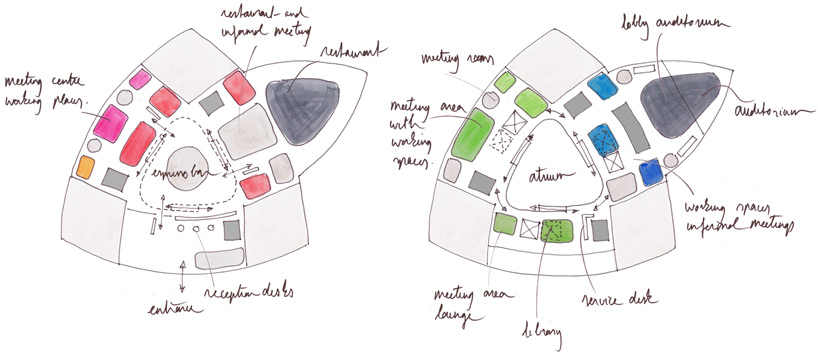 restaurant and
informal meeting
restaurant
meeting centre
working places.
espressobar
reception desks
entrance
lobby auditorium
meeting rooms
meeting area
with
working
spaces.
auditorium
atrium
working spaces
informal meetings
meeting area
lounge
library
service desk